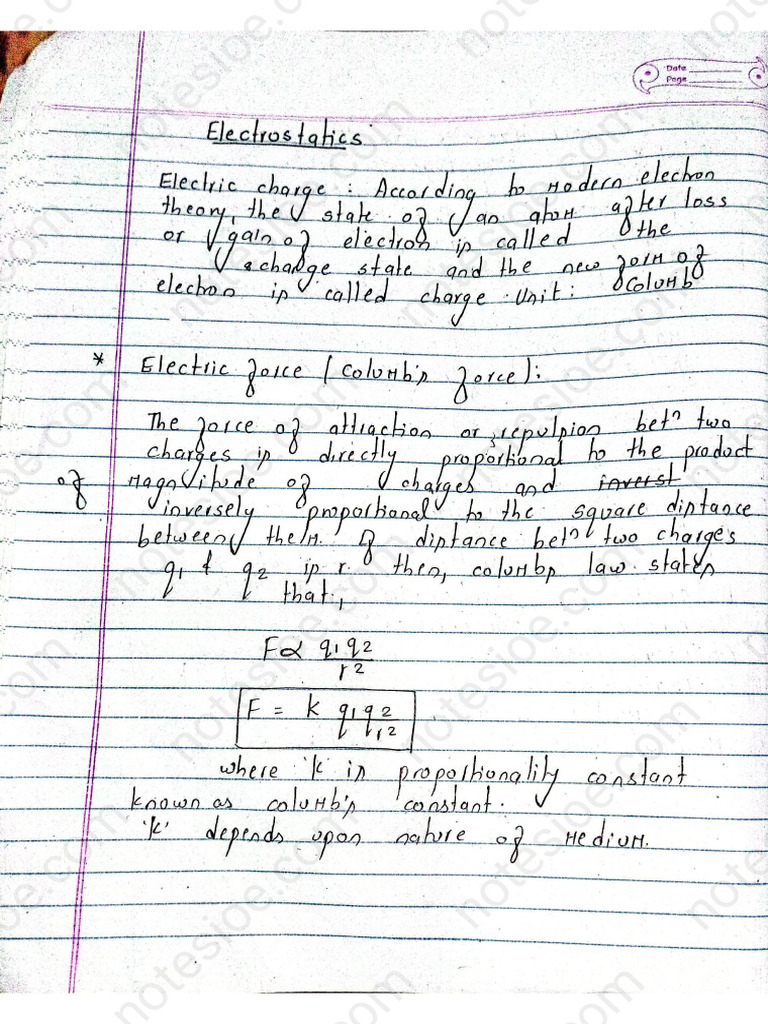 Date
Page
Electrostatics
Electric charge : According to modern electron
theory, the state of an atom after loss
or gain of electron is called the
charge state and the new form of
electron is called charge Unit: Columb
* Electric force (Columb's force):
The force of attraction or repulsion betⁿ two
charges is directly proportional to the product
of magnitude of charges and inverst
inversely proportional to the square distance
between them. If distance betⁿ two charges
q1 & q2 is r then, columbs law states
that,
F ∝ q1 q2 / r2
F = K q1 q2 / r2
where 'K is proportionality constant
known as columb's constant.
'K' depends upon nature of medium.
notesioe.com